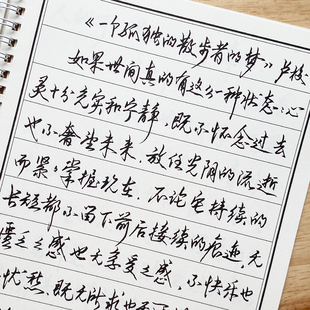 《一个孤独的散步者的梦》卢梭
如果世间真的有这么一种状态：心
灵十分充实和宁静，既不怀念过去
也不奢望未来，放任光阴的流逝
而紧紧掌握现在，不论它持续的
长短都不留下前后接续的痕迹，无
匮乏之感也无享受之感，不快乐也
忧愁，既无所求也